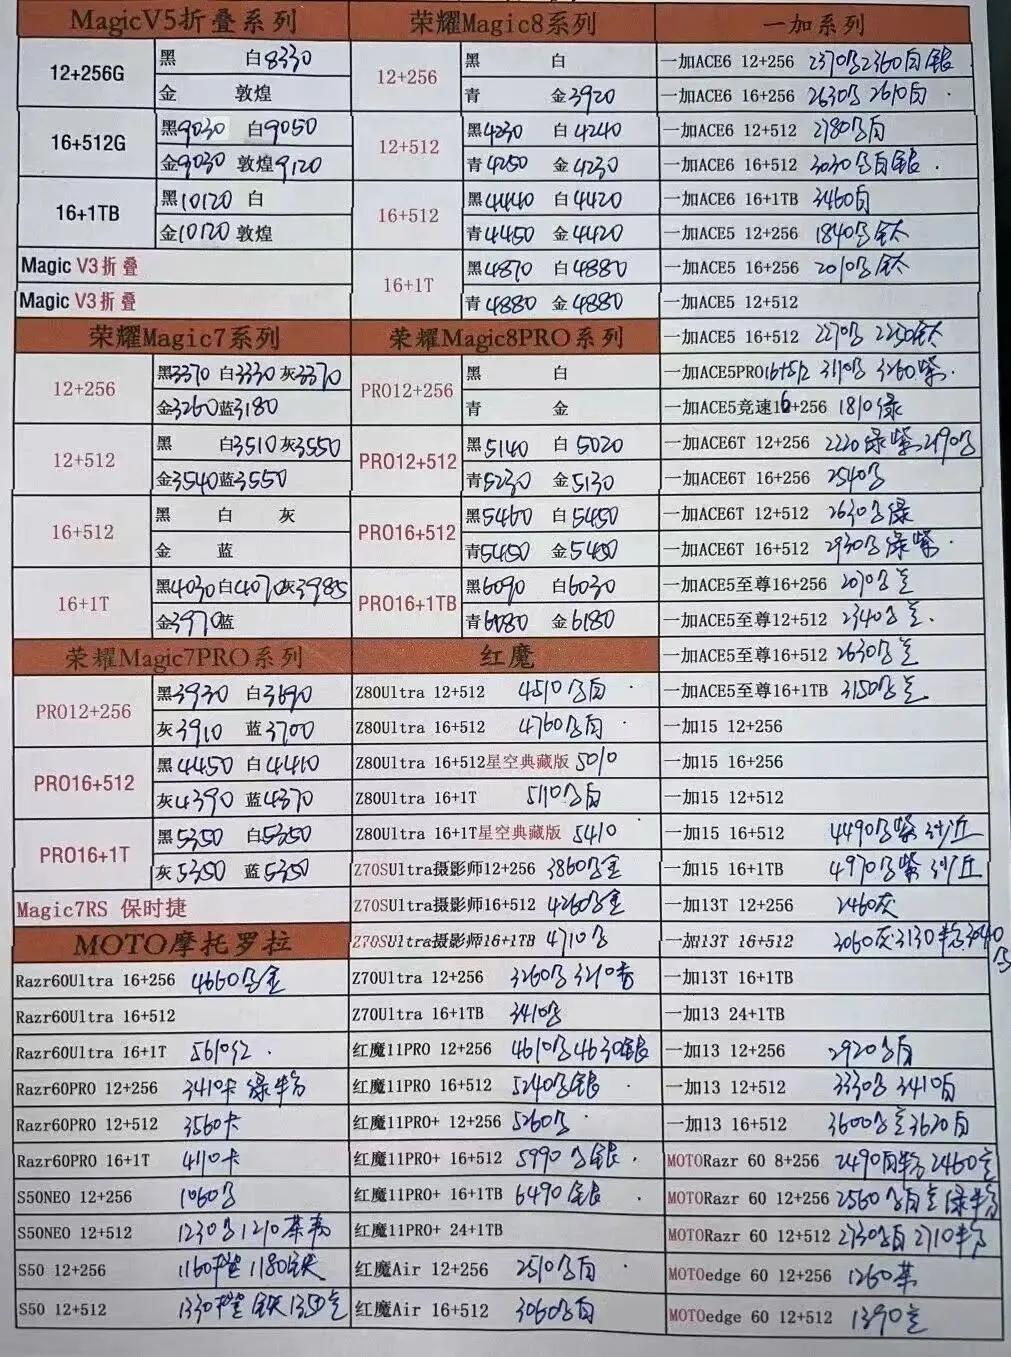 MagicV5折叠系列
12+256G
黑 白8330
金 敦煌
16+512G
黑9030 白9050
金9030 敦煌9120
16+1TB
黑10120 白
金10120 敦煌
Magic V3折叠
Magic V3折叠
荣耀Magic7系列
12+256
黑3370 白3330 灰3370
金3260 蓝3180
12+512
黑 白3510 灰3550
金3540 蓝3550
16+512
黑 白 灰
金 蓝
16+1T
黑4030 白4070 灰3985
金3970 蓝
荣耀Magic7PRO系列
PRO12+256
黑3930 白3690
灰3910 蓝3700
PRO16+512
黑4450 白4410
灰4390 蓝4370
PRO16+1T
黑5350 白5350
灰5350 蓝5350
Magic7RS 保时捷
MOTO摩托罗拉
Razr60Ultra 16+256 4660 金
Razr60Ultra 16+512
Razr60Ultra 16+1T 5610红
Razr60PRO 12+256 3410卡 绿
Razr60PRO 12+512 3560卡
Razr60PRO 16+1T 4110卡
S50NEO 12+256 1060
S50NEO 12+512 1230 1210
S50 12+256 1160 1180
S50 12+512 1330 1350
荣耀Magic8系列
12+256
黑 白
青 金3920
12+512
黑4230 白4240
青4250 金4230
16+512
黑4440 白4420
青4450 金4420
16+1T
黑4870 白4880
青4880 金4880
荣耀Magic8PRO系列
PRO12+256
黑 白
青 金
PRO12+512
黑5140 白5020
青5230 金5130
PRO16+512
黑5460 白5450
青5450 金5450
PRO16+1TB
黑6090 白6030
青6080 金6180
红魔
Z80Ultra 12+512 4510 白
Z80Ultra 16+512 4760 白
Z80Ultra 16+512星空典藏版 5010
Z80Ultra 16+1T 5110 白
Z80Ultra 16+1T星空典藏版 5410
Z70SUltra摄影师12+256 3860 金
Z70SUltra摄影师16+512 4260 金
Z70SUltra摄影师16+1TB 4710
Z70Ultra 12+256 3260 3210
Z70Ultra 16+1TB 3410
红魔11PRO 12+256 4610 4630银
红魔11PRO 16+512 5240 银
红魔11PRO+ 12+256 5260
红魔11PRO+ 16+512 5990 银
红魔11PRO+ 16+1TB 6490 银
红魔11PRO+ 24+1TB
红魔Air 12+256 2510 白
红魔Air 16+512 3060 白
一加系列
一加ACE6 12+256 2370 2360白银
一加ACE6 16+256 2630 2610白
一加ACE6 12+512 2780 白
一加ACE6 16+512 3030 白银
一加ACE6 16+1TB 3460白
一加ACE5 12+256 1840 钛
一加ACE5 16+256 2010 钛
一加ACE5 12+512
一加ACE5 16+512 2270 2250钛
一加ACE5PRO16+512 3110 3260紫
一加ACE5竞速16+256 1810绿
一加ACE6T 12+256 2220绿紫 2190
一加ACE6T 16+256 2540
一加ACE6T 12+512 2630 绿
一加ACE6T 16+512 2930 绿紫
一加ACE5至尊16+256 2070
一加ACE5至尊12+512 2340
一加ACE5至尊16+512 2630
一加ACE5至尊16+1TB 3150
一加15 12+256
一加15 16+256
一加15 12+512
一加15 16+512 4490 紫 沙丘
一加15 16+1TB 4970 紫 沙丘
一加13T 12+256 2460灰
一加13T 16+512 3060灰 3130粉 3040
一加13T 16+1TB
一加13 24+1TB
一加13 12+256 2920 白
一加13 12+512 3330 3410白
一加13 16+512 3600 3620白
MOTORazr 60 8+256 2490白粉 2460
MOTORazr 60 12+256 2560 白 绿粉
MOTORazr 60 12+512 2730 白 2710粉
MOTOedge 60 12+256 1260
MOTOedge 60 12+512 1390